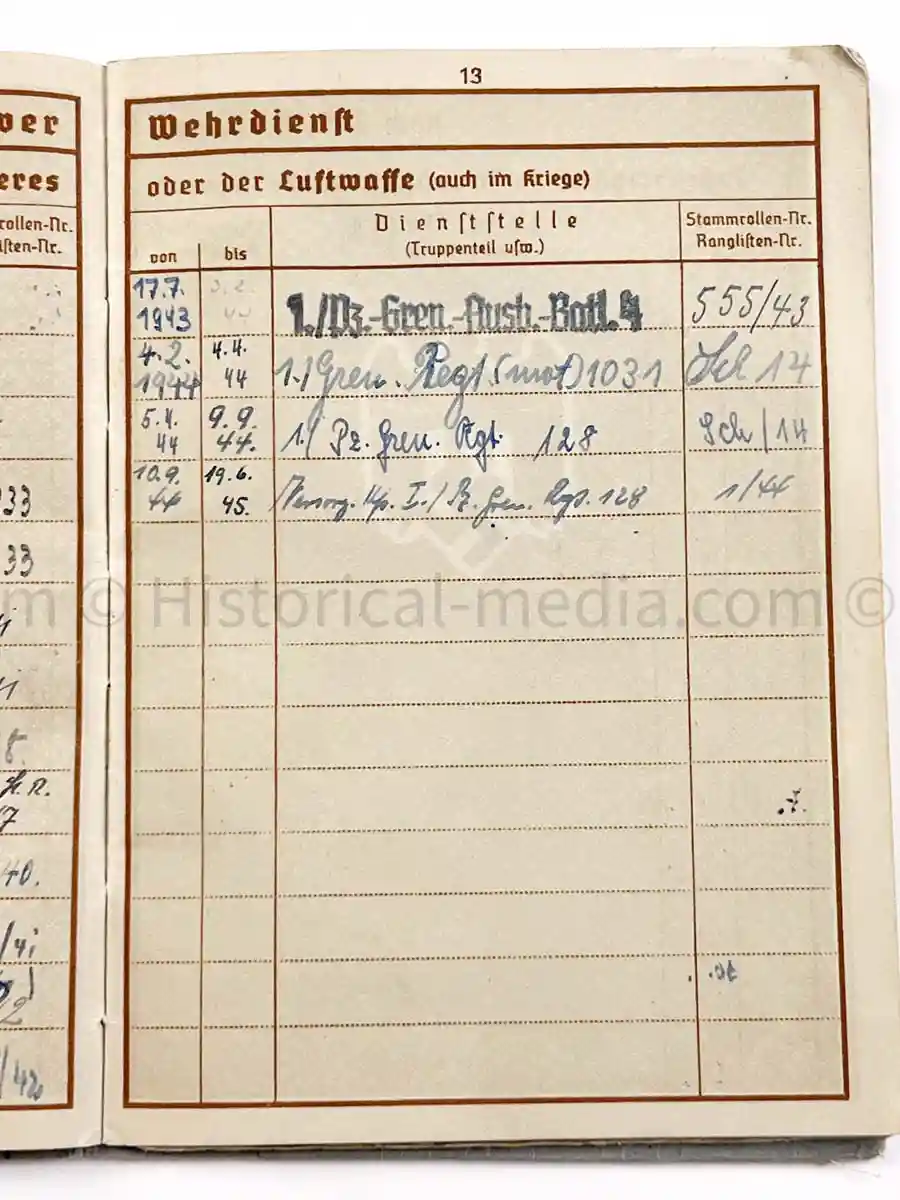 13
wer
Wehrdienst
eres
oder der Luftwaffe (auch im Kriege)
rollen-Nr.
isten-Nr.
von
bis
Dienststelle
(Truppenteil usw.)
Stammrollen-Nr.
Ranglisten-Nr.
17.7. 1943 3.2. 44 1./Pz.-Gren.-Ausb.-Batl. 4 555/43
4.2. 1944 4.4. 44 1./Gren. Regt. (mot) 1031 14
5.4. 44 9.9. 44. 1./ Pz. Gren. Rgt. 128 Sch/14
10.9. 44 19.6. 45. Versorg. Kp. I./ Pz. Gren. Rgt. 128 1/44
33
33
8.
17
40.
/41
2
/42
m © Historical-media.com ©